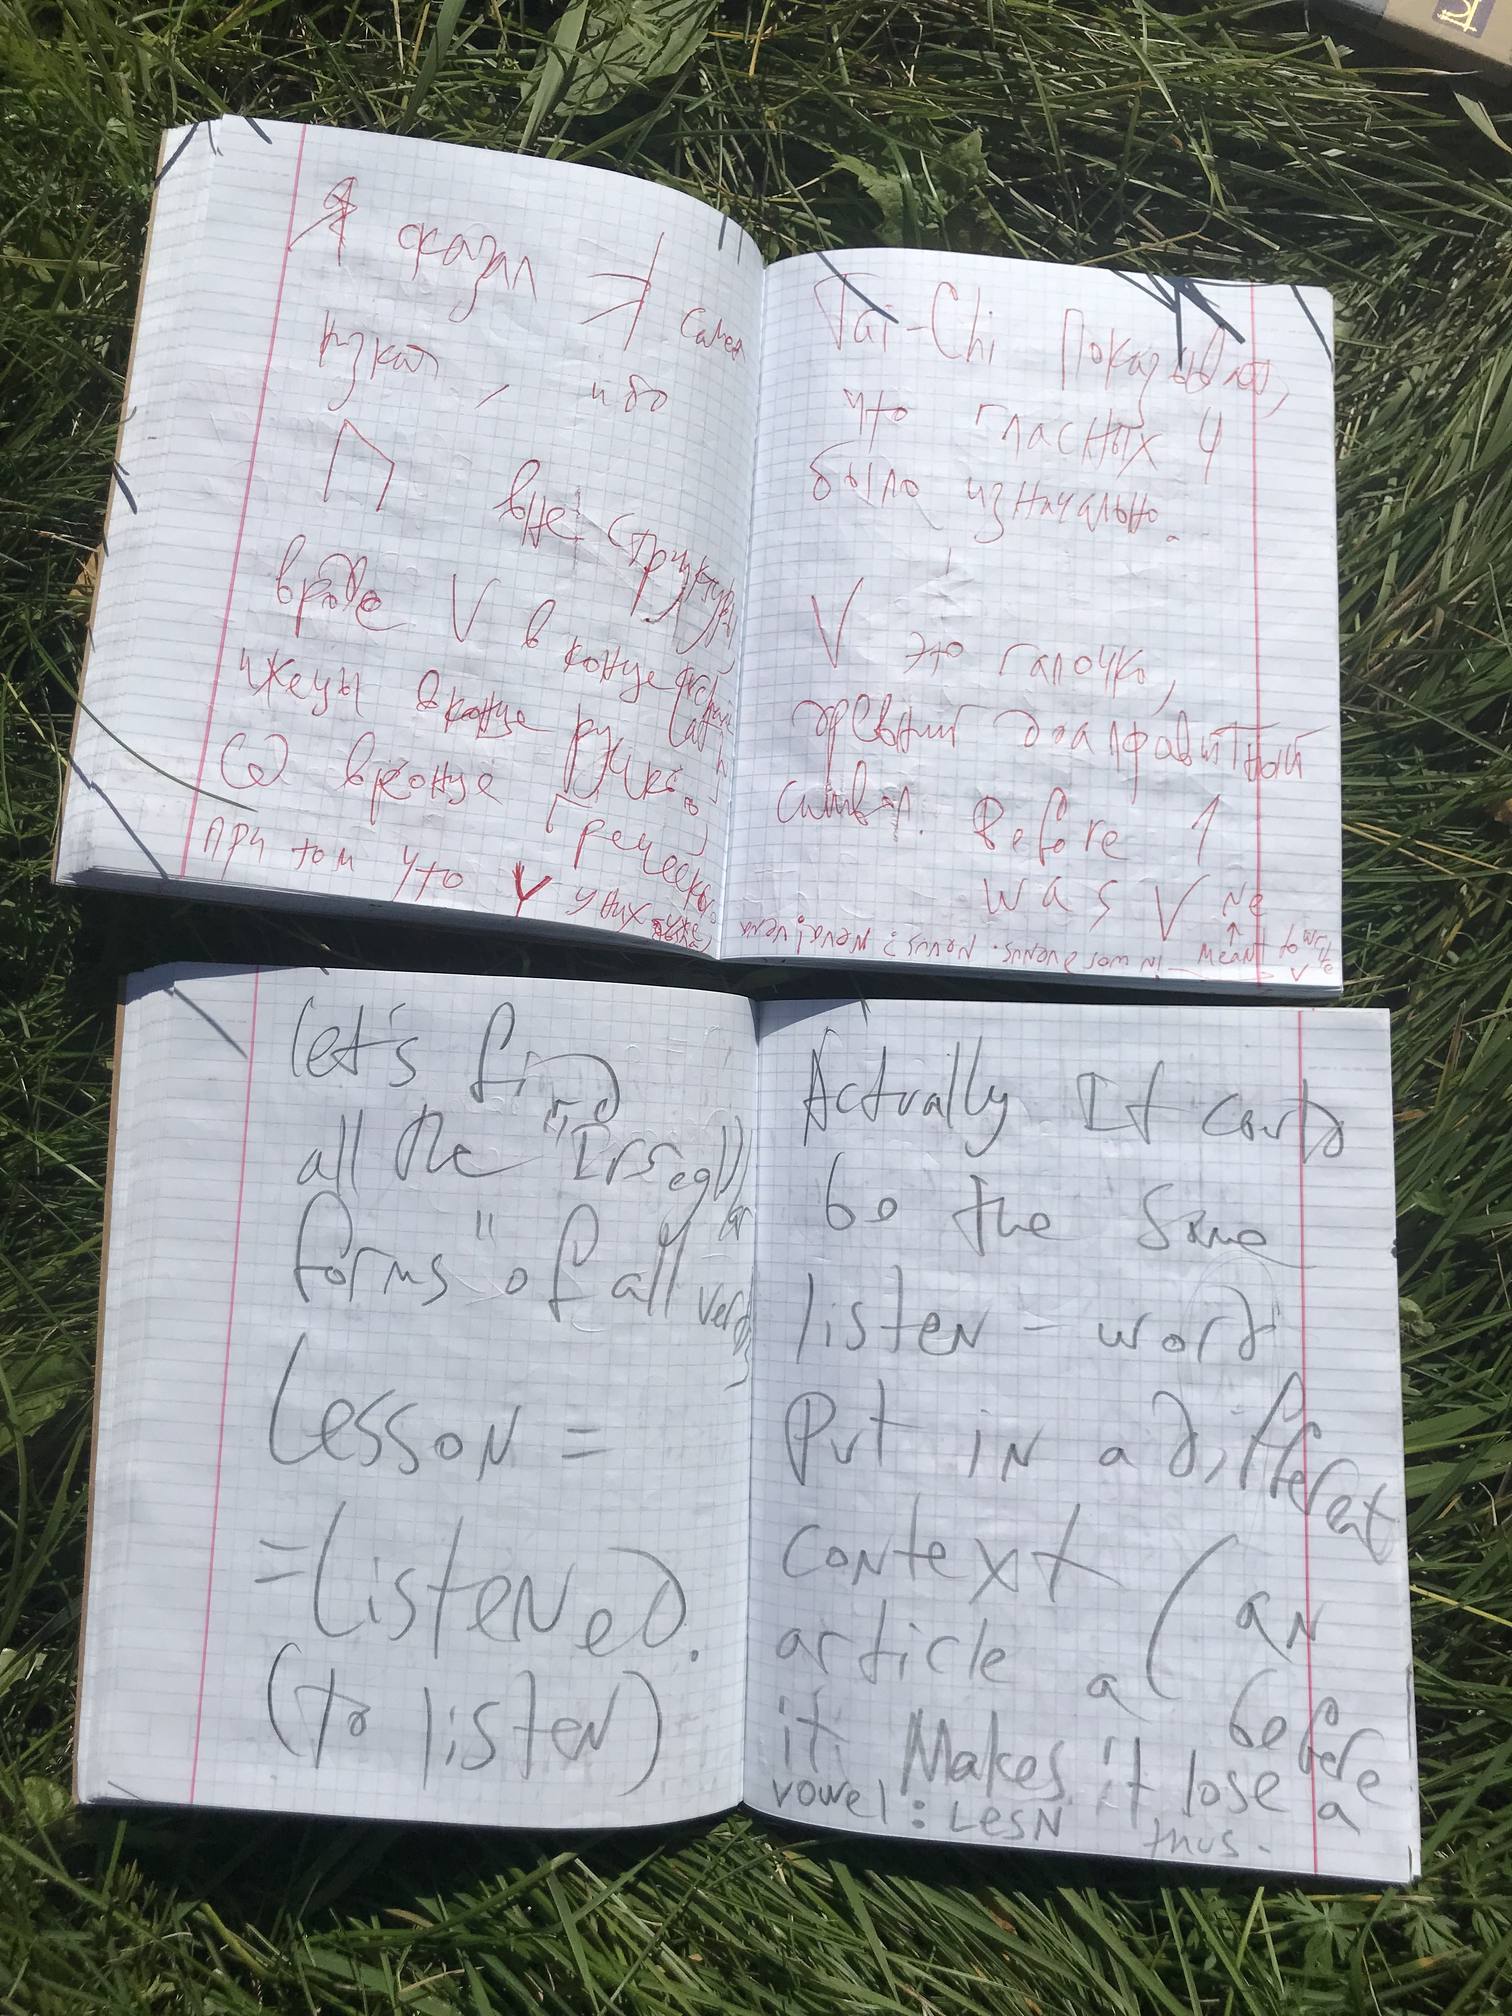 Я сказал
самая
низкая, ибо
П вне структуры,
вроде V в конце
ижицы в конце русского
Ѡ в конце Греческого
При том что Y у них
Tai-Chi показывало,
что гласных 4
было изначально.
V это галочка,
древний доалфавитный
символ. Before 1
was V Ne
↑
Meant to write V
let's find
all the "Irregular
forms" of all verbs
Lesson =
=Listened.
(to listen)
Actually It could
be the same
listen - word
Put in a different
context
article a (an
before a
it. Makes it lose a
vowel: LesN thus.